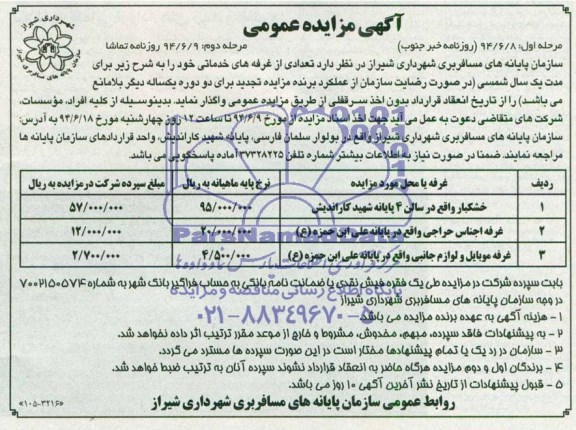 شهرداری شیراز
سازمان پایانه های مسافربری شیراز
آگهی مزایده عمومی
مرحله اول: ۹۴/۶/۸ (روزنامه خبر جنوب)
مرحله دوم: ۹۴/۶/۹ روزنامه تماشا
سازمان پایانه های مسافربری شهرداری شیراز در نظر دارد تعدادی از غرفه های خدماتی خود را به شرح زیر برای
مدت یک سال شمسی (در صورت رضایت سازمان از عملکرد برنده مزایده تجدید برای دو دوره یکساله دیگر بلامانع
می باشد) را از تاریخ انعقاد قرارداد بدون اخذ سرقفلی از طریق مزایده عمومی واگذار نماید. بدینوسیله از کلیه افراد، مؤسسات،
شرکت های متقاضی دعوت به عمل می آید جهت اخذ اسناد مزایده از مورخ ۹۴/۶/۹ تا ساعت ۱۲ روز چهارشنبه مورخ ۹۴/۶/۱۸ به آدرس:
سازمان پایانه های مسافربری شهرداری شیراز واقع در بولوار سلمان فارسی، پایانه شهید کاراندیش، واحد قراردادهای سازمان پایانه ها
مراجعه نمایند. ضمنا در صورت نیاز به اطلاعات بیشتر شماره تلفن ۳۷۳۲۸۲۲۵ آماده پاسخگویی می باشد.
ردیف غرفه یا محل مورد مزایده نرخ پایه ماهیانه به ریال مبلغ سپرده شرکت در مزایده به ریال
۱ خشکبار واقع در سالن ۴ پایانه شهید کاراندیش ۹۵/۰۰۰/۰۰۰ ۵۷/۰۰۰/۰۰۰
۲ غرفه اجناس حراجی واقع در پایانه علی ابن حمزه (ع) ۲۰/۰۰۰/۰۰۰ ۱۲/۰۰۰/۰۰۰
۳ غرفه موبایل و لوازم جانبی واقع در پایانه علی ابن حمزه (ع) ۴/۵۰۰/۰۰۰ ۲/۷۰۰/۰۰۰
ParsNamadData
پایگاه اطلاع رسانی مناقصه و مزایده
۰۲۱-۸۸۳۴۹۶۷۰-۵
بابت سپرده شرکت در مزایده طی یک فقره فیش نقدی یا ضمانت نامه بانکی به حساب فراگیر بانک شهر به شماره ۷۰۰۲۱۵۰۰۵۷۴
در وجه سازمان پایانه های مسافربری شهرداری شیراز
۱- هزینه آگهی به عهده برنده مزایده می باشد.
۲- به پیشنهادات فاقد سپرده، مبهم، مخدوش، مشروط و خارج از موعد مقرر ترتیب اثر داده نخواهد شد.
۳- سازمان در رد یک یا تمام پیشنهادها مختار است در این صورت سپرده ها مسترد می گردد.
۴- برندگان اول و دوم مزایده هرگاه حاضر به انعقاد قرارداد نشوند سپرده آنان به ترتیب ضبط خواهد شد.
۵- قبول پیشنهادات از تاریخ نشر آخرین آگهی ۱۰ روز می باشد.
روابط عمومی سازمان پایانه های مسافربری شهرداری شیراز
«۱۰۵-۳۲۱۶»